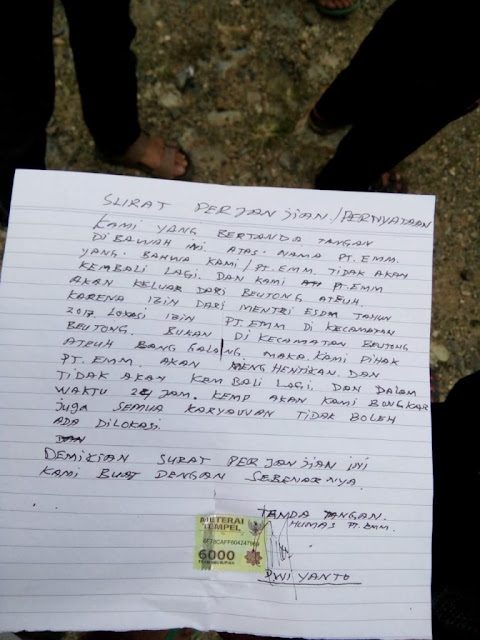 SURAT PERJANJIAN/PERNYATAAN
KAMI YANG BERTANDA TANGAN
DIBAWAH INI. ATAS. NAMA PT. EMM.
YANG. BAHWA KAMI/PT. EMM. TIDAK AKAN
KEMBALI LAGI. DAN KAMI PT. EMM
AKAN KELUAR DARI BEUTONG ATEUH.
KARENA IZIN DARI MENTRI ESDM TAHUN
2017. LOKASI IZIN PT. EMM DI KECAMATAN
BEUTONG. BUKAN DI KECAMATAN BEUTONG
ATEUH BANG GALANG. MAKA KAMI PIHAK
PT. EMM. AKAN MENGHENTIKAN DAN
TIDAK AKAN KEMBALI LAGI. DAN DALAM
WAKTU 24 JAM. KEMP AKAN KAMI BONGKAR
JUGA SEMUA KARYAWAN TIDAK BOLEH
ADA DILOKASI.
DEMIKIAN SURAT PERJANJIAN INI
KAMI BUAT DENGAN SEBENARNYA.
TANDA TANGAN.
HUMAS PT. EMM.
METERAI
TEMPEL
6000
DWI YANTO